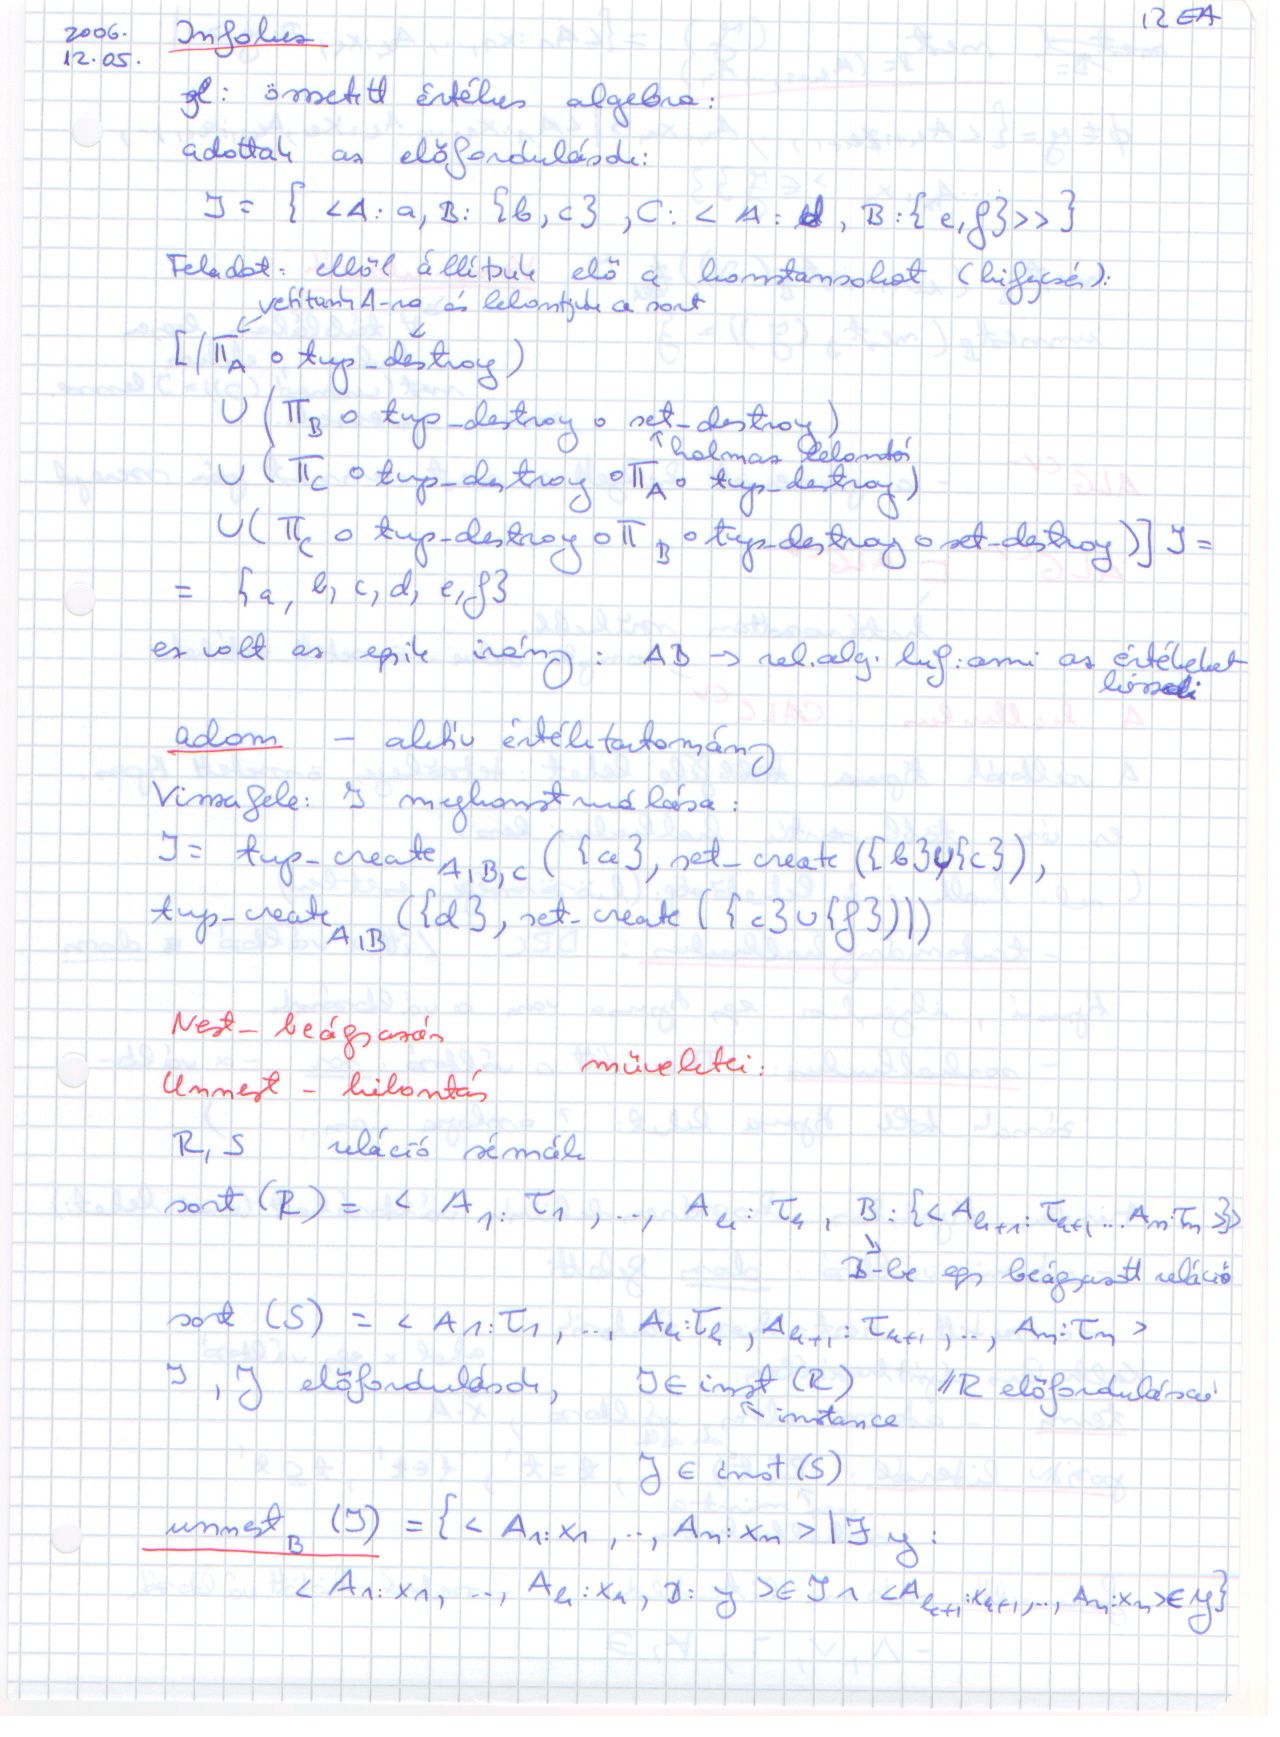 12 EA
2006.
12.05.
Infokus
pl: összetett értékes algebra:
adottak az előfordulások:
I = { <A: a, B: {b, c}, C: < A: d, B: {e, f}>> }
Feladat: ebből állítsuk elő a konstansokat (kifejezés):
vetítünk A-ra és lebontjuk a sort
[(π_A ∘ tup_destroy)
∪ (π_B ∘ tup_destroy ∘ set_destroy)
halmaz lebontó
∪ (π_C ∘ tup_destroy ∘ π_A ∘ tup_destroy)
∪ (π_C ∘ tup_destroy ∘ π_B ∘ tup_destroy ∘ set_destroy)] I =
= {a, b, c, d, e, f}
ez volt az egyik irány: AB → rel.alg. kif: ami az értékeket
adom – aktív értéktartomány
Visszafele: I megkonstruálása:
I = tup_create_A,B,C ({a}, set_create ({b}∪{c}),
tup_create_A,B ({d}, set_create ({e}∪{f})))
Nest – beágyazás
műveletei:
Unnest – kibontás
R, S reláció sémák
sort (R) = < A₁: τ₁, .., A_k: τ_k, B: {<A_k+1: τ_k+1, ... A_n: τ_n>}>
B-be egy beágyazott reláció
sort (S) = < A₁:τ₁, .., A_k:τ_k, A_k+1: τ_k+1, .., A_n: τ_n >
I, J előfordulások, I ∈ inst (R) // R előfordulásai
↖ instance
J ∈ inst (S)
unnest_B (I) = { < A₁: x₁, .., A_n: x_n > | ∃ y:
< A₁: x₁, .., A_k: x_k, B: y > ∈ I ∧ <A_k+1: x_k+1, .., A_n: x_n> ∈ y}